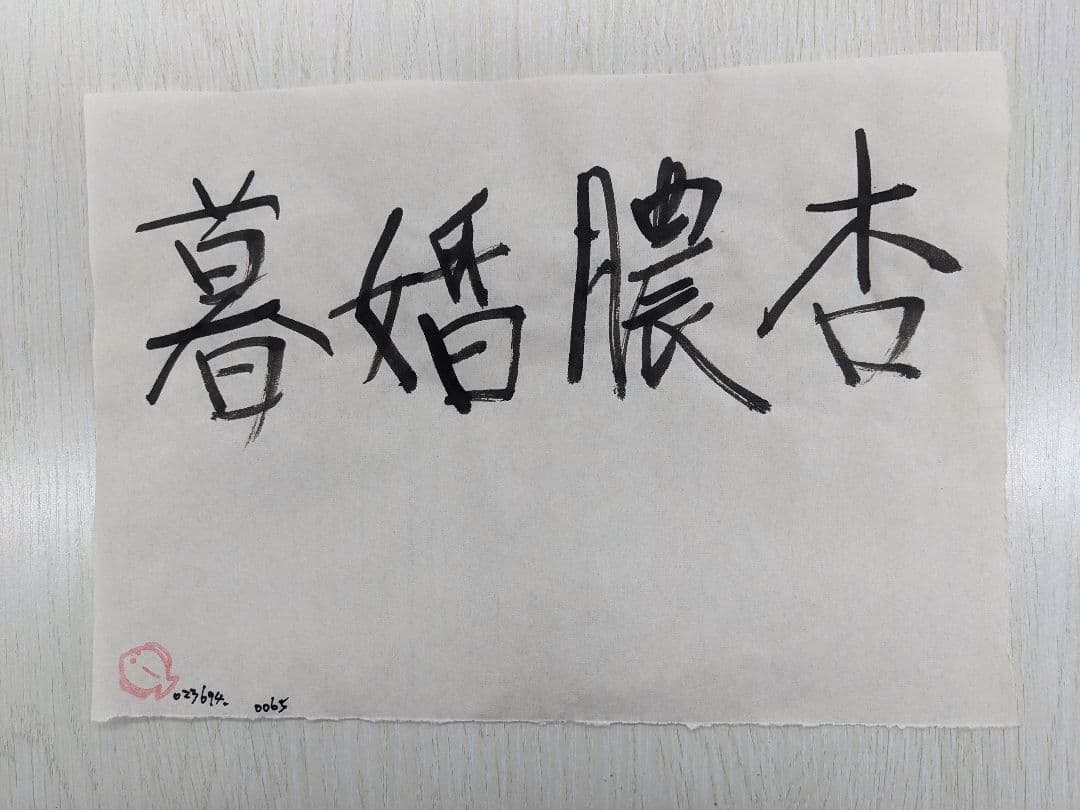 暮婚膿杏
023694. 0065